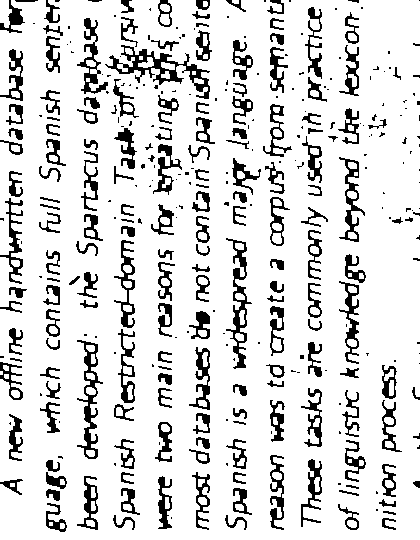 A new offline handwritten database for
guage, which contains full Spanish senten
been developed: the Spartacus database
Spanish Restricted-domain Task of Cursiv
were two main reasons for creating this co
most databases do not contain Spanish sente
Spanish is a widespread major language. A
reason was to create a corpus from semanti
These tasks are commonly used in practice
of linguistic knowledge beyond the lexicon
nition process.